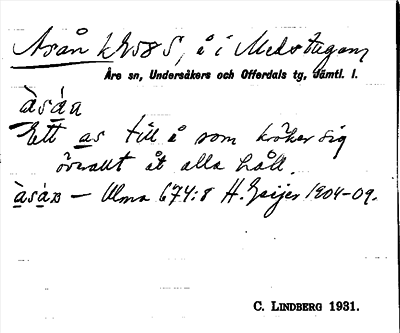 Asån k 258 S, å i Medstugan
Åre sn, Undersåkers och Offerdals tg, Jämtl. l.
àsán
Ett as till å som kröker sig
överallt åt alla håll.
àsáɴ — Ulma 674:8 H. Geijer 1904-09.
C. LINDBERG 1931.